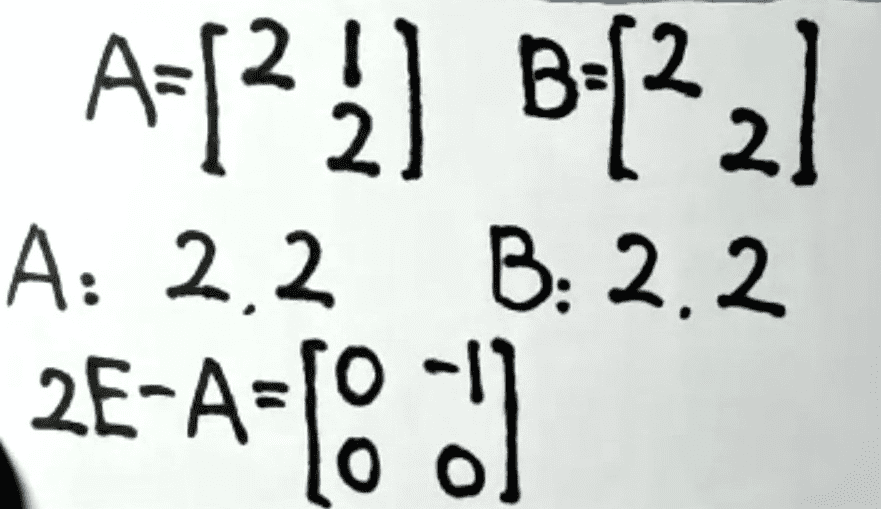 A=[2 1
2] B=[2
2]
A: 2, 2 B: 2, 2
2E-A=[0 -1
0 0]